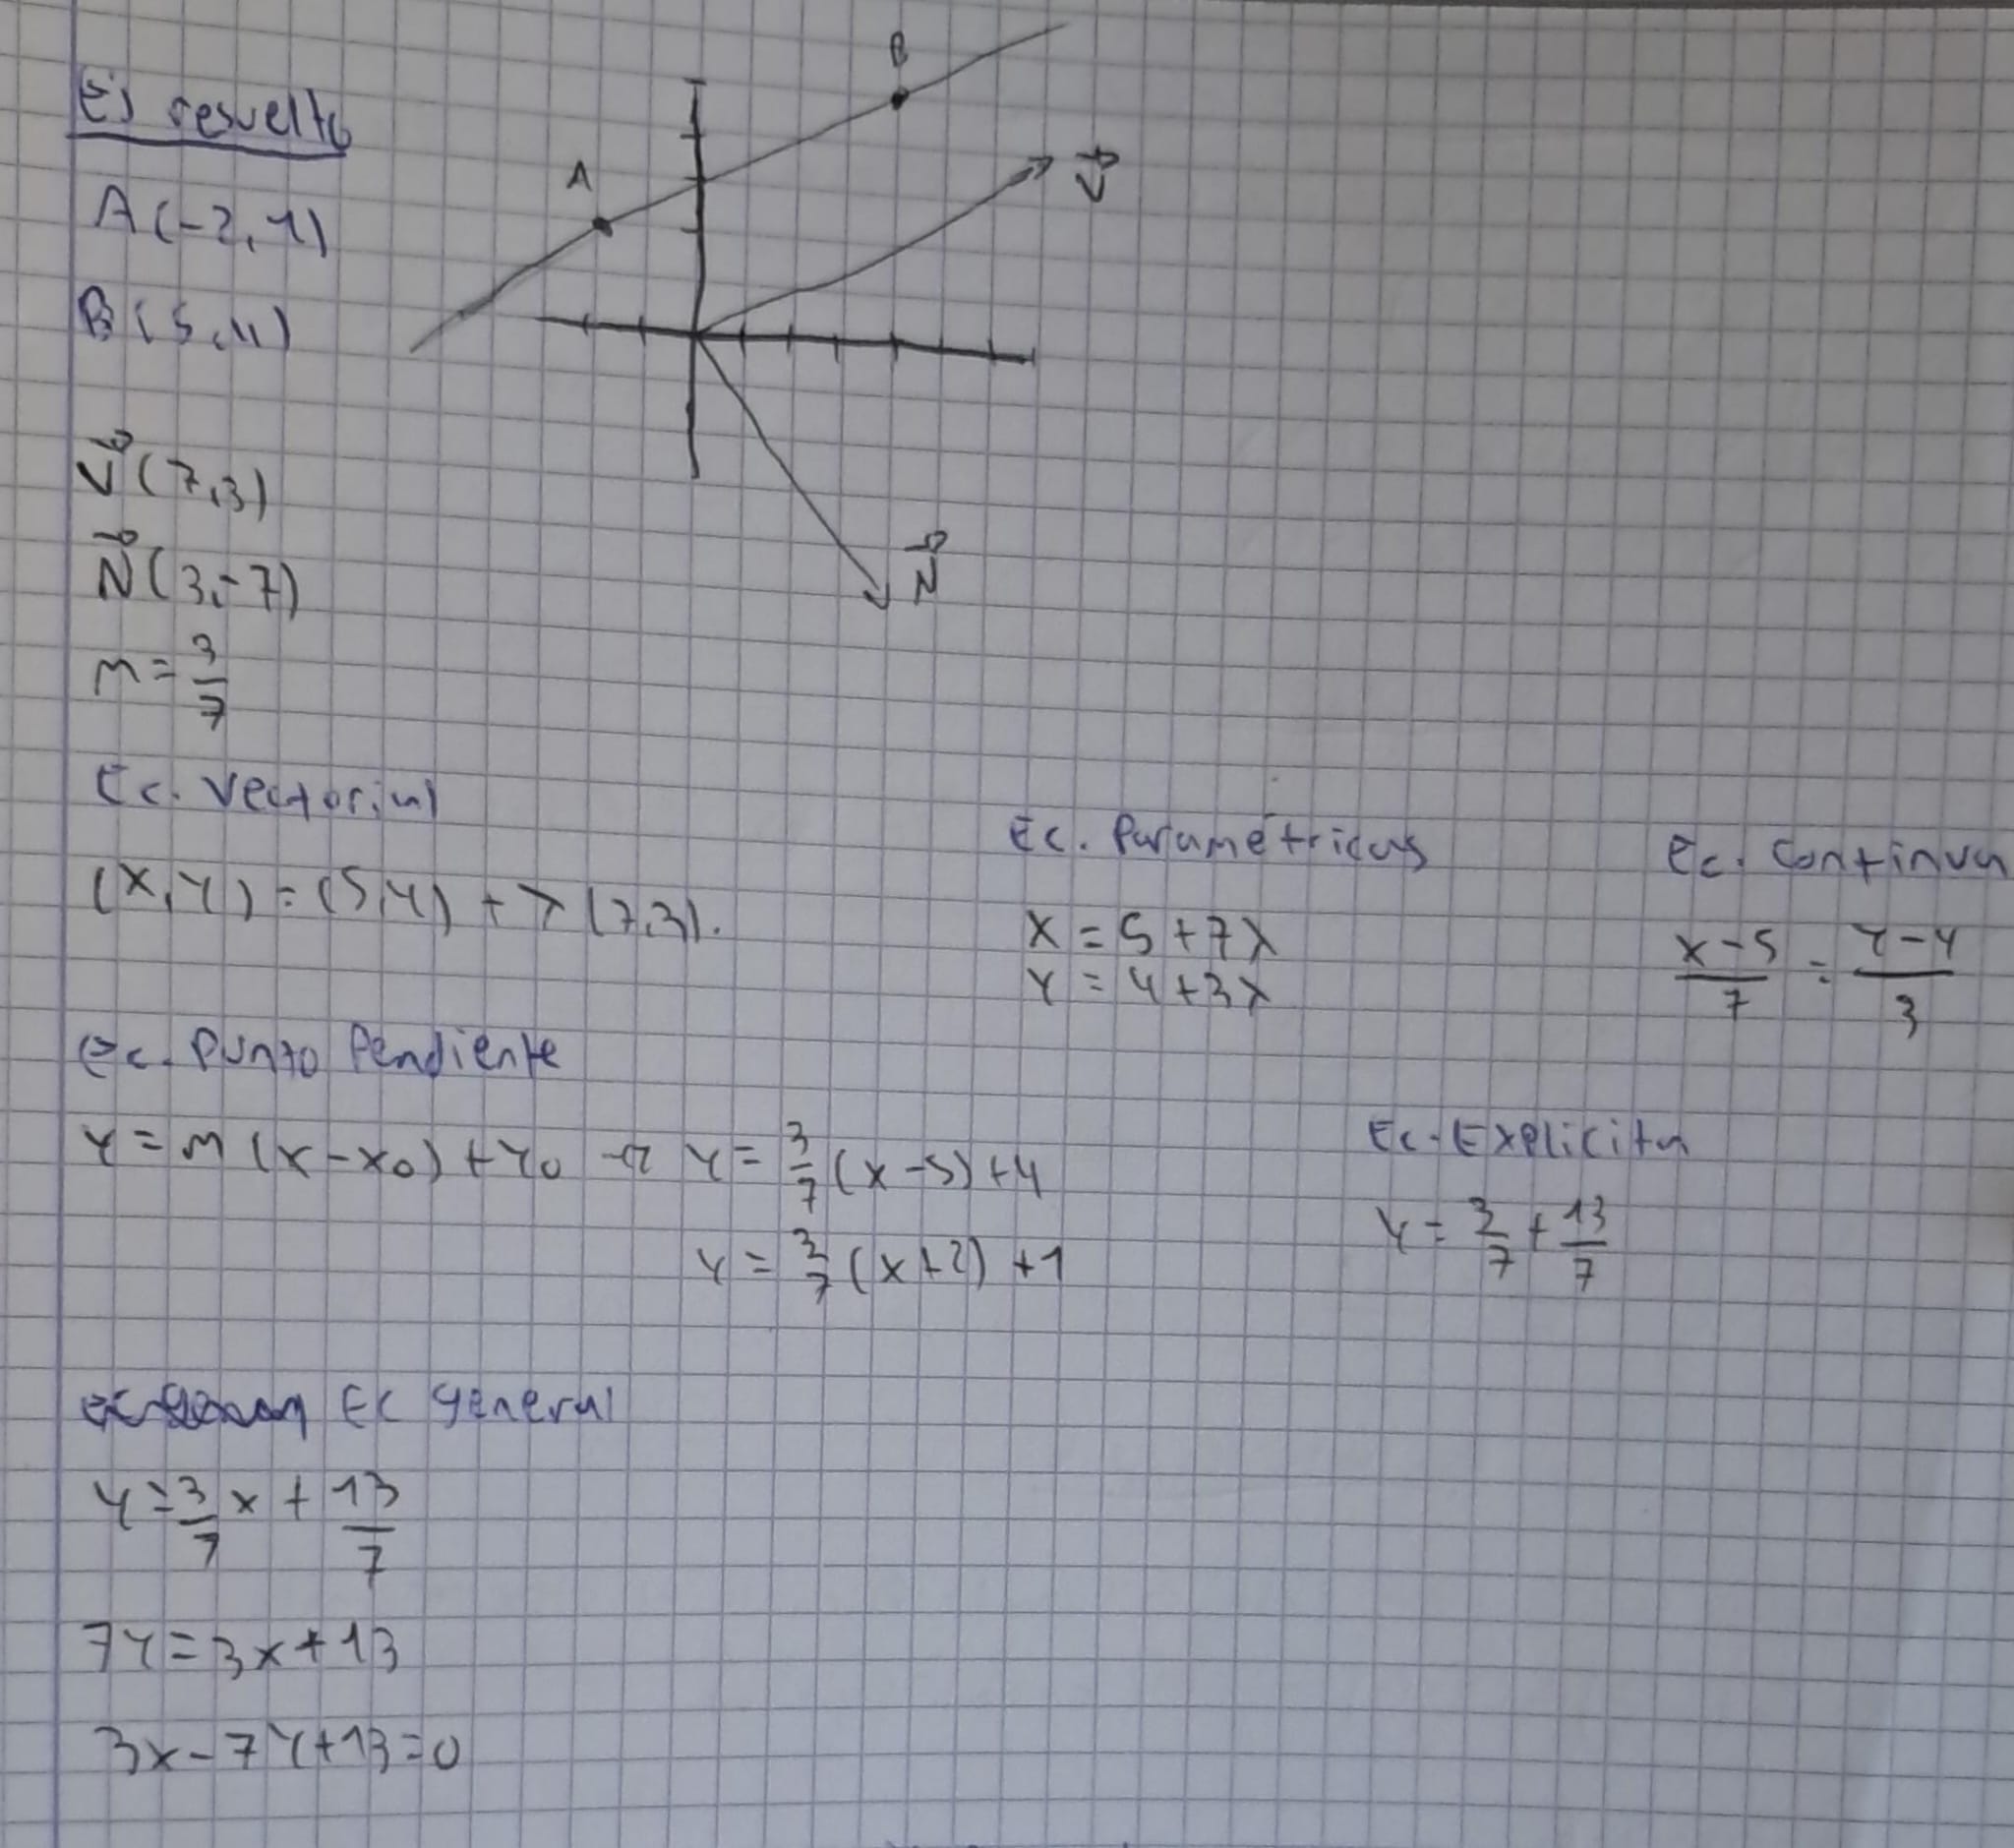 Ej resuelto
B
A
V⃗
A(-2,1)
B(5,4)
V⃗(7,3)
N⃗
N⃗(3,-7)
m=3/7
Ec. Vectorial
(x,y)=(5,4)+λ(7,3).
Ec. Paramétricas
x=5+7λ
y=4+3λ
Ec. Continua
x-5/7 = y-4/3
Ec. Punto Pendiente
y=m(x-x₀)+y₀ → y=3/7(x-5)+4
y=3/7(x+2)+1
Ec. Explicita
y=3/7+13/7
Ec general
y=3/7x+13/7
7y=3x+13
3x-7y+13=0